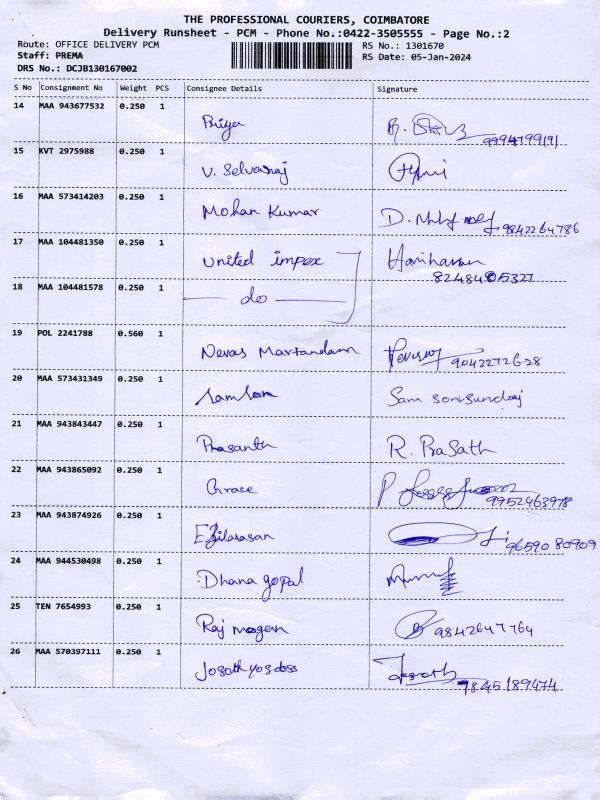 THE PROFESSIONAL COURIERS, COIMBATORE
Delivery Runsheet - PCM - Phone No.:0422-3505555 - Page No.:2
Route: OFFICE DELIVERY PCM RS No.: 1301670
Staff: PREMA RS Date: 05-Jan-2024
DRS No.: DCJB130167002
S No Consignment No Weight PCS Consignee Details Signature
14 MAA 943677532 0.250 1
Priya 9994799191
15 KVT 2975988 0.250 1
V. Selvaraj
16 MAA 573414203 0.250 1
Mohan Kumar 9842264786
17 MAA 104481350 0.250 1
United impex Hariharan
8248405327
18 MAA 104481578 0.250 1
do
19 POL 2241788 0.560 1
Nevas Martandam 9042272628
20 MAA 573431349 0.250 1
Sam
21 MAA 943843447 0.250 1
Prasanth R. Prasath
22 MAA 943865092 0.250 1
Grace P
9952463978
23 MAA 943874926 0.250 1
Ezhilarasan 9659080909
24 MAA 944530498 0.250 1
Dhana gopal
25 TEN 7654993 0.250 1
Raj magan 9842647764
26 MAA 570397111 0.250 1
9845189474